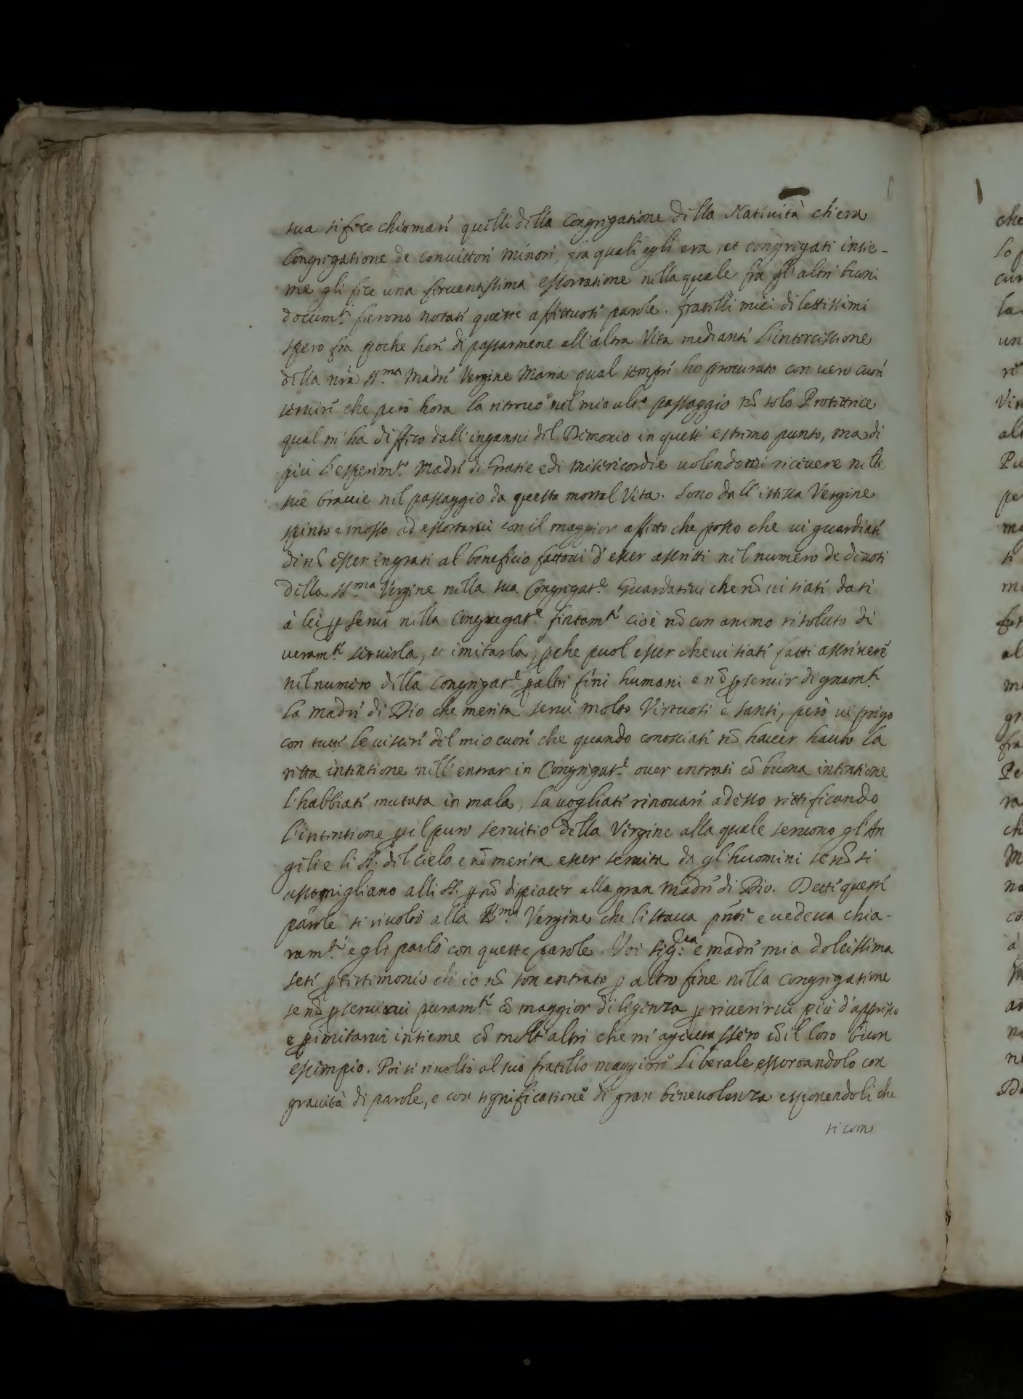 sua si fece chiamare quelli della Congregatione della Natività ch'era
Congregatione de convittori minori, fra quali egli era, et congregati insie-
me gli fece una ferventissima essortatione nella quale fra gl'altri buoni
docum.ti furono notati queste affettuose parole. fratelli miei dilettissimi
spero fra poche hore di passarmene all'altra Vita mediante l'intercessione
della nr̃a S.ma Madre Vergine Maria qual sempre ho procurato con vero cuore
servire che però hora la ritrovo nel mio ult.o passaggio nõ solo Protettrice
qual m'ha difeso dall'inganni del Demonio in quest'estremo punto, ma di
più l'esperim.to Madre di Gratie e di misericordie volendomi ricevere nelle
sue braccie nel passaggio da questa mortal Vita. Sono dall'istessa Vergine
spinto e mosso ad essortarvi con il maggior affetto che posso che vi guardiate
di nõ esser ingrati al beneficio fattovi d'esser ascritti nel numero de devoti
della S.ma Vergine nella sua Congregat.e Guardative che nõ vi siate dati
à lei p servi nella Congregat.e fintam.te cioè nõ con animo risoluto di
veram.te servirla, et imitarla, pche puol esser che vi siate fatti ascrivere
nel numero della Congregat.e p altri fini humani e nõ p servir degnam.te
la madre di Dio che merita servi molto Virtuosi e santi, però vi prego
con tutte le viscere del mio cuore che quando conosciate nõ haver hauto la
retta intentione nell'entrar in Congregat.e over entrati cõ buona intentione
l'habbiate mutata in mala, la vogliate rinovare adesso rettificando
l'intentione p il puro servitio della Vergine alla quale servono gl'An
geli e li S.ti del cielo e nõ merita esser servita da gl'huomini se nõ si
assomigliano alli S.ti p nõ dispiacer alla gran Madre di Dio. Dette queste
parole si rivoltò alla B.ma Vergine che li stava pñte e vedeva chia-
ram.te e gli parlò con queste parole. Voi sig.ra e madre mia dolcissima
sete p testimonio ch'io nõ son entrato p altro fine nella Congregatione
se nõ p servirvi puram.te cõ maggior diligenza p riverirvi più d'appresso
e p imitarvi insieme cõ molt'altri che m'agiutassero cõ il loro buon
essempio. Poi si rivoltò al suo fratello maggiore Liberale essortandolo con
gravità di parole, e con significatione di gran benevolenza esponendoli che
si come